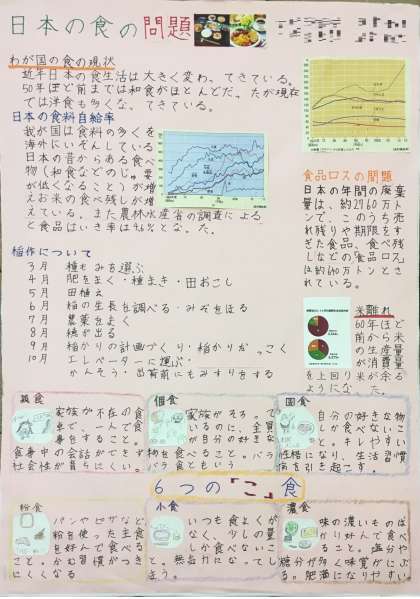 日本の食の問題
わが国の食の現状
近年日本の食生活は大きく変わってきている。
50年ほど前までは和食がほとんどだったが現在
では洋食も多くなってきている。
日本の食料自給率
我が国は食料の多くを
海外にいぞんしている
日本の昔からある食べ
物（和食などのじゅ要
が低くなること）が増
えお米の食べ残しが増
えている。また農林水産省の調査による
稲作について
3月 種もみを選ぶ
4月 肥をまく・種まき・田おこし
5月 田植え
6月 稲の生長を調べる・みぞをほる
7月 農薬をまく
8月 穂が出る
9月 稲かりの計画づくり・稲かり・だっこく
10月 エレベーターに運ぶ
かんそう・出荷前にもみすりをする
食品ロスの問題
日本の年間の廃棄
量は、約2760万ト
ンで、このうち売
れ残りや期限をす
ぎた食品、食べ残
しなどの「食品ロス」
は約640万トンとさ
れている。
米離れ
60年ほど
前から米
の生産量
が消費量
を上回り米が余る
ようになった。
孤食
家族が不在の食
卓で、一人で食
事をすること。
食事中の会話ができず
社会性が育ちにくい。
個食
家族がそろって
いるのに、全員
が自分の好きな
物を食べること。バラ
バラ食ともいう
固食
自分の好きな物
しか食べないこ
と。キレやすい
性格になり、生活習慣
病を引き起こす。
6つの「こ」食
粉食
パンやピザなど
粉を使った主食
を好んで食べる
こと。かむ習慣がつき
にくくなる
小食
いつも食よくが
なく、少しの量
しか食べないこ
と。無気力になってし
まう。
濃食
味の濃いものば
かり好んで食べ
ること。塩分や
糖分が多く味覚がにぶ
る。肥満になりやすい